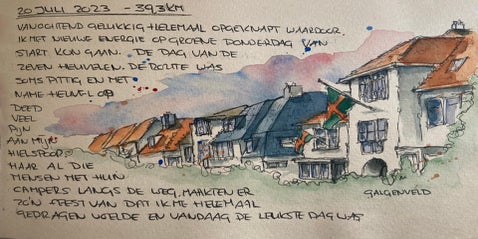 20 JULI 2023 - 39,3 KM
VANOCHTEND GELUKKIG HELEMAAL OPGEKNAPT WAARDOOR
IK MET NIEUWE ENERGIE OP GROENE DONDERDAG VAN
START KON GAAN. DE DAG VAN DE
ZEVEN HEUVELEN. DE ROUTE WAS
SOMS PITTIG EN MET
NAME HEUVEL OP
DEED
VEEL
PIJN
AAN MIJN
HIELSPOOR,
MAAR AL DIE
MENSEN MET HUN
CAMPERS LANGS DE WEG, MAAKTEN ER
ZO'N FEEST VAN DAT IK ME HELEMAAL
GEDRAGEN VOELDE EN VANDAAG DE LEUKSTE DAG WAS
GALGENVELD